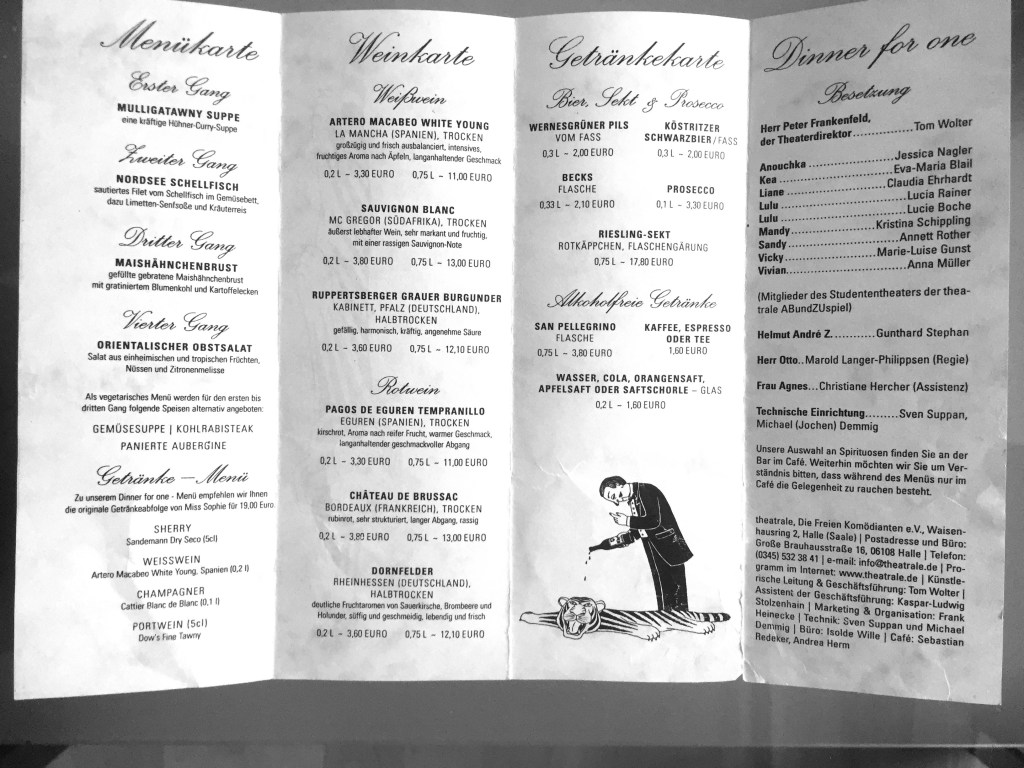 Menükarte
Erster Gang
MULLIGATAWNY SUPPE
eine kräftige Hühner-Curry-Suppe
Zweiter Gang
NORDSEE SCHELLFISCH
sautiertes Filet vom Schellfisch im Gemüsebett,
dazu Limetten-Senfsoße und Kräuterreis
Dritter Gang
MAISHÄHNCHENBRUST
gefüllte gebratene Maishähnchenbrust
mit gratiniertem Blumenkohl und Kartoffelecken
Vierter Gang
ORIENTALISCHER OBSTSALAT
Salat aus einheimischen und tropischen Früchten,
Nüssen und Zitronenmelisse
Als vegetarisches Menü werden für den ersten bis
dritten Gang folgende Speisen alternativ angeboten:
GEMÜSESUPPE | KOHLRABISTEAK
PANIERTE AUBERGINE
Getränke – Menü
Zu unserem Dinner for one - Menü empfehlen wir Ihnen
die originale Getränkeabfolge von Miss Sophie für 19,00 Euro.
SHERRY
Sandemann Dry Seco (5cl)
WEISSWEIN
Artero Macabeo White Young, Spanien (0,2 l)
CHAMPAGNER
Cattier Blanc de Blanc (0,1 l)
PORTWEIN (5cl)
Dow's Fine Tawny
Weinkarte
Weißwein
ARTERO MACABEO WHITE YOUNG
LA MANCHA (SPANIEN), TROCKEN
großzügig und frisch ausbalanciert, intensives,
fruchtiges Aroma nach Äpfeln, langanhaltender Geschmack
0,2 L – 3,30 EURO 0,75 L – 11,00 EURO
SAUVIGNON BLANC
MC GREGOR (SÜDAFRIKA), TROCKEN
äußerst lebhafter Wein, sehr markant und fruchtig,
mit einer rassigen Sauvignon-Note
0,2 L – 3,80 EURO 0,75 L – 13,00 EURO
RUPPERTSBERGER GRAUER BURGUNDER
KABINETT, PFALZ (DEUTSCHLAND),
HALBTROCKEN
gefällig, harmonisch, kräftig, angenehme Säure
0,2 L – 3,60 EURO 0,75 L – 12,10 EURO
Rotwein
PAGOS DE EGUREN TEMPRANILLO
EGUREN (SPANIEN), TROCKEN
kirschrot, Aroma nach reifer Frucht, warmer Geschmack,
langanhaltender geschmackvoller Abgang
0,2 L – 3,30 EURO 0,75 L – 11,00 EURO
CHÂTEAU DE BRUSSAC
BORDEAUX (FRANKREICH), TROCKEN
rubinrot, sehr strukturiert, langer Abgang, rassig
0,2 L – 3,80 EURO 0,75 L – 13,00 EURO
DORNFELDER
RHEINHESSEN (DEUTSCHLAND),
HALBTROCKEN
deutliche Fruchtaromen von Sauerkirsche, Brombeere und
Holunder, süffig und geschmeidig, lebendig und frisch
0,2 L – 3,60 EURO 0,75 L – 12,10 EURO
Getränkekarte
Bier, Sekt & Prosecco
WERNESGRÜNER PILS
VOM FASS
0,3 L – 2,00 EURO
KÖSTRITZER
SCHWARZBIER/FASS
0,3 L – 2,00 EURO
BECKS
FLASCHE
0,33 L – 2,10 EURO
PROSECCO
0,1 L – 3,30 EURO
RIESLING-SEKT
ROTKÄPPCHEN, FLASCHENGÄRUNG
0,75 L – 17,80 EURO
Alkoholfreie Getränke
SAN PELLEGRINO
FLASCHE
0,75 L – 3,80 EURO
KAFFEE, ESPRESSO
ODER TEE
1,60 EURO
WASSER, COLA, ORANGENSAFT,
APFELSAFT ODER SAFTSCHORLE – GLAS
0,2 L – 1,60 EURO
Dinner for one
Besetzung
Herr Peter Frankenfeld,
der Theaterdirektor...............Tom Wolter
Anouchka....................Jessica Nagler
Kea...........................Eva-Maria Blail
Liane.......................Claudia Ehrhardt
Lulu............................Lucia Rainer
Lulu............................Lucie Boche
Mandy....................Kristina Schippling
Sandy.........................Annett Rother
Vicky....................Marie-Luise Gunst
Vivian............................Anna Müller
(Mitglieder des Studententheaters der thea-
trale ABundZUspiel)
Helmut André Z..........Gunthard Stephan
Herr Otto..Marold Langer-Philippsen (Regie)
Frau Agnes...Christiane Hercher (Assistenz)
Technische Einrichtung.........Sven Suppan,
Michael (Jochen) Demmig
Unsere Auswahl an Spirituosen finden Sie an der
Bar im Café. Weiterhin möchten wir Sie um Ver-
ständnis bitten, dass während des Menüs nur im
Café die Gelegenheit zu rauchen besteht.
theatrale, Die Freien Komödianten e.V., Waisen-
hausring 2, Halle (Saale) | Postadresse und Büro:
Große Brauhausstraße 16, 06108 Halle | Telefon:
(0345) 532 38 41 | e-mail: info@theatrale.de | Pro-
gramm im Internet: www.theatrale.de | Künstle-
rische Leitung & Geschäftsführung: Tom Wolter |
Assistent der Geschäftsführung: Kaspar-Ludwig
Stolzenhain | Marketing & Organisation: Frank
Heinecke | Technik: Sven Suppan und Michael
Demmig | Büro: Isolde Wille | Café: Sebastian
Redeker, Andrea Herm